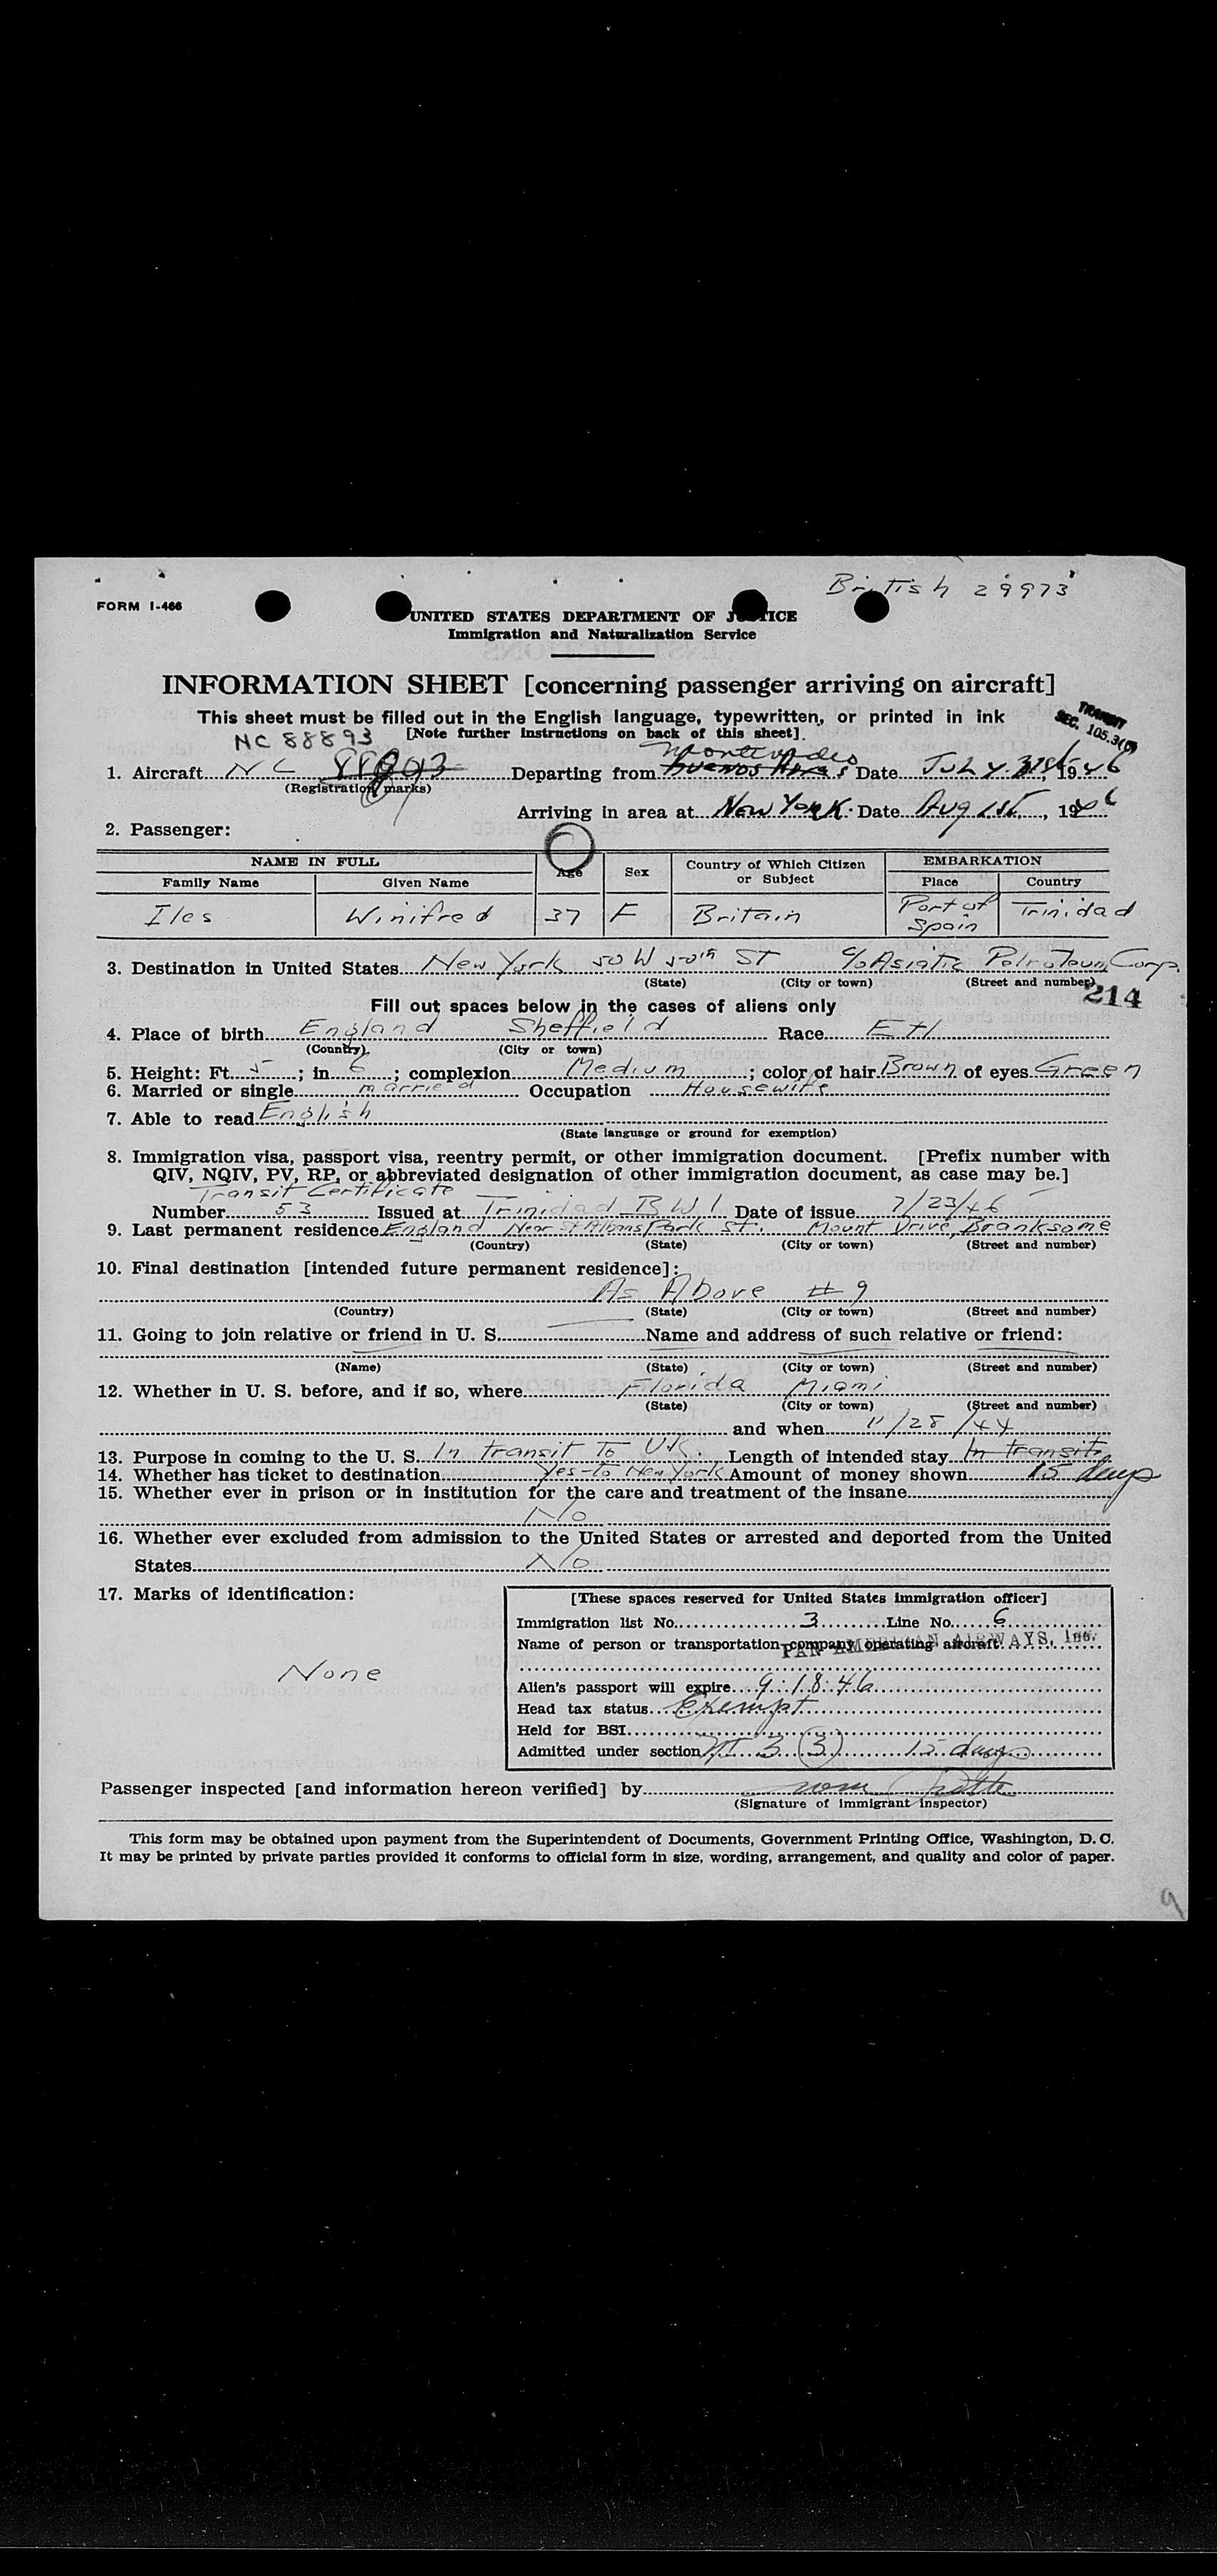 British 29973
FORM I-466
UNITED STATES DEPARTMENT OF JUSTICE
Immigration and Naturalization Service
INFORMATION SHEET [concerning passenger arriving on aircraft]
This sheet must be filled out in the English language, typewritten, or printed in ink
TRANSIT
SEC. 105.3(c)
NC 88893 [Note further instructions on back of this sheet].
Montevideo
1. Aircraft NC Departing from Buenos Aires Date July 31st, 1946
(Registration marks)
Arriving in area at New York Date Aug 1st, 1946
2. Passenger:
NAME IN FULL Age Sex Country of Which Citizen or Subject EMBARKATION
Family Name Given Name Place Country
Iles Winifred 37 F Britain Port of Spain Trinidad
3. Destination in United States New York 50 W 50th ST c/o Asiatic Petroleum Corp.
(State) (City or town) (Street and number)
214
Fill out spaces below in the cases of aliens only
4. Place of birth England Sheffield Race
(Country) (City or town)
5. Height: Ft. 5; in 6; complexion Medium; color of hair Brown of eyes Green
6. Married or single married Occupation Housewife
7. Able to read English
(State language or ground for exemption)
8. Immigration visa, passport visa, reentry permit, or other immigration document. [Prefix number with
QIV, NQIV, PV, RP, or abbreviated designation of other immigration document, as case may be.]
Transit Certificate
Number 53 Issued at Trinidad BWI Date of issue 7/23/46
9. Last permanent residence England Near St Albans Park St. Mount Drive, Branksome
(Country) (State) (City or town) (Street and number)
10. Final destination [intended future permanent residece]:
As Above #9
(Country) (State) (City or town) (Street and number)
11. Going to join relative or friend in U. S. Name and address of such relative or friend:
(Name) (State) (City or town) (Street and number)
12. Whether in U. S. before, and if so, where Florida Miami
(State) (City or town) (Street and number)
and when 11/28/44
13. Purpose in coming to the U. S. In transit To U.K. Length of intended stay In transit
14. Whether has ticket to destination Yes-to New York Amount of money shown 15 days
15. Whether ever in prison or in institution for the care and treatment of the insane
No
16. Whether ever excluded from admission to the United States or arrested and deported from the United
States No
17. Marks of identification:
None
[These spaces reserved for United States immigration officer]
Immigration list No. 3 Line No. 6
Name of person or transportation company operating aircraft PAN AMERICAN AIRWAYS, Inc.
Alien's passport will expire 9-18-46
Head tax status Exempt
Held for BSI
Admitted under section 3 (3) 15 days
Passenger inspected [and information hereon verified] by
(Signature of immigrant inspector)
This form may be obtained upon payment from the Superintendent of Documents, Government Printing Office, Washington, D. C.
It may be printed by private parties provided it conforms to official form in size, wording, arrangement, and quality and color of paper.
9